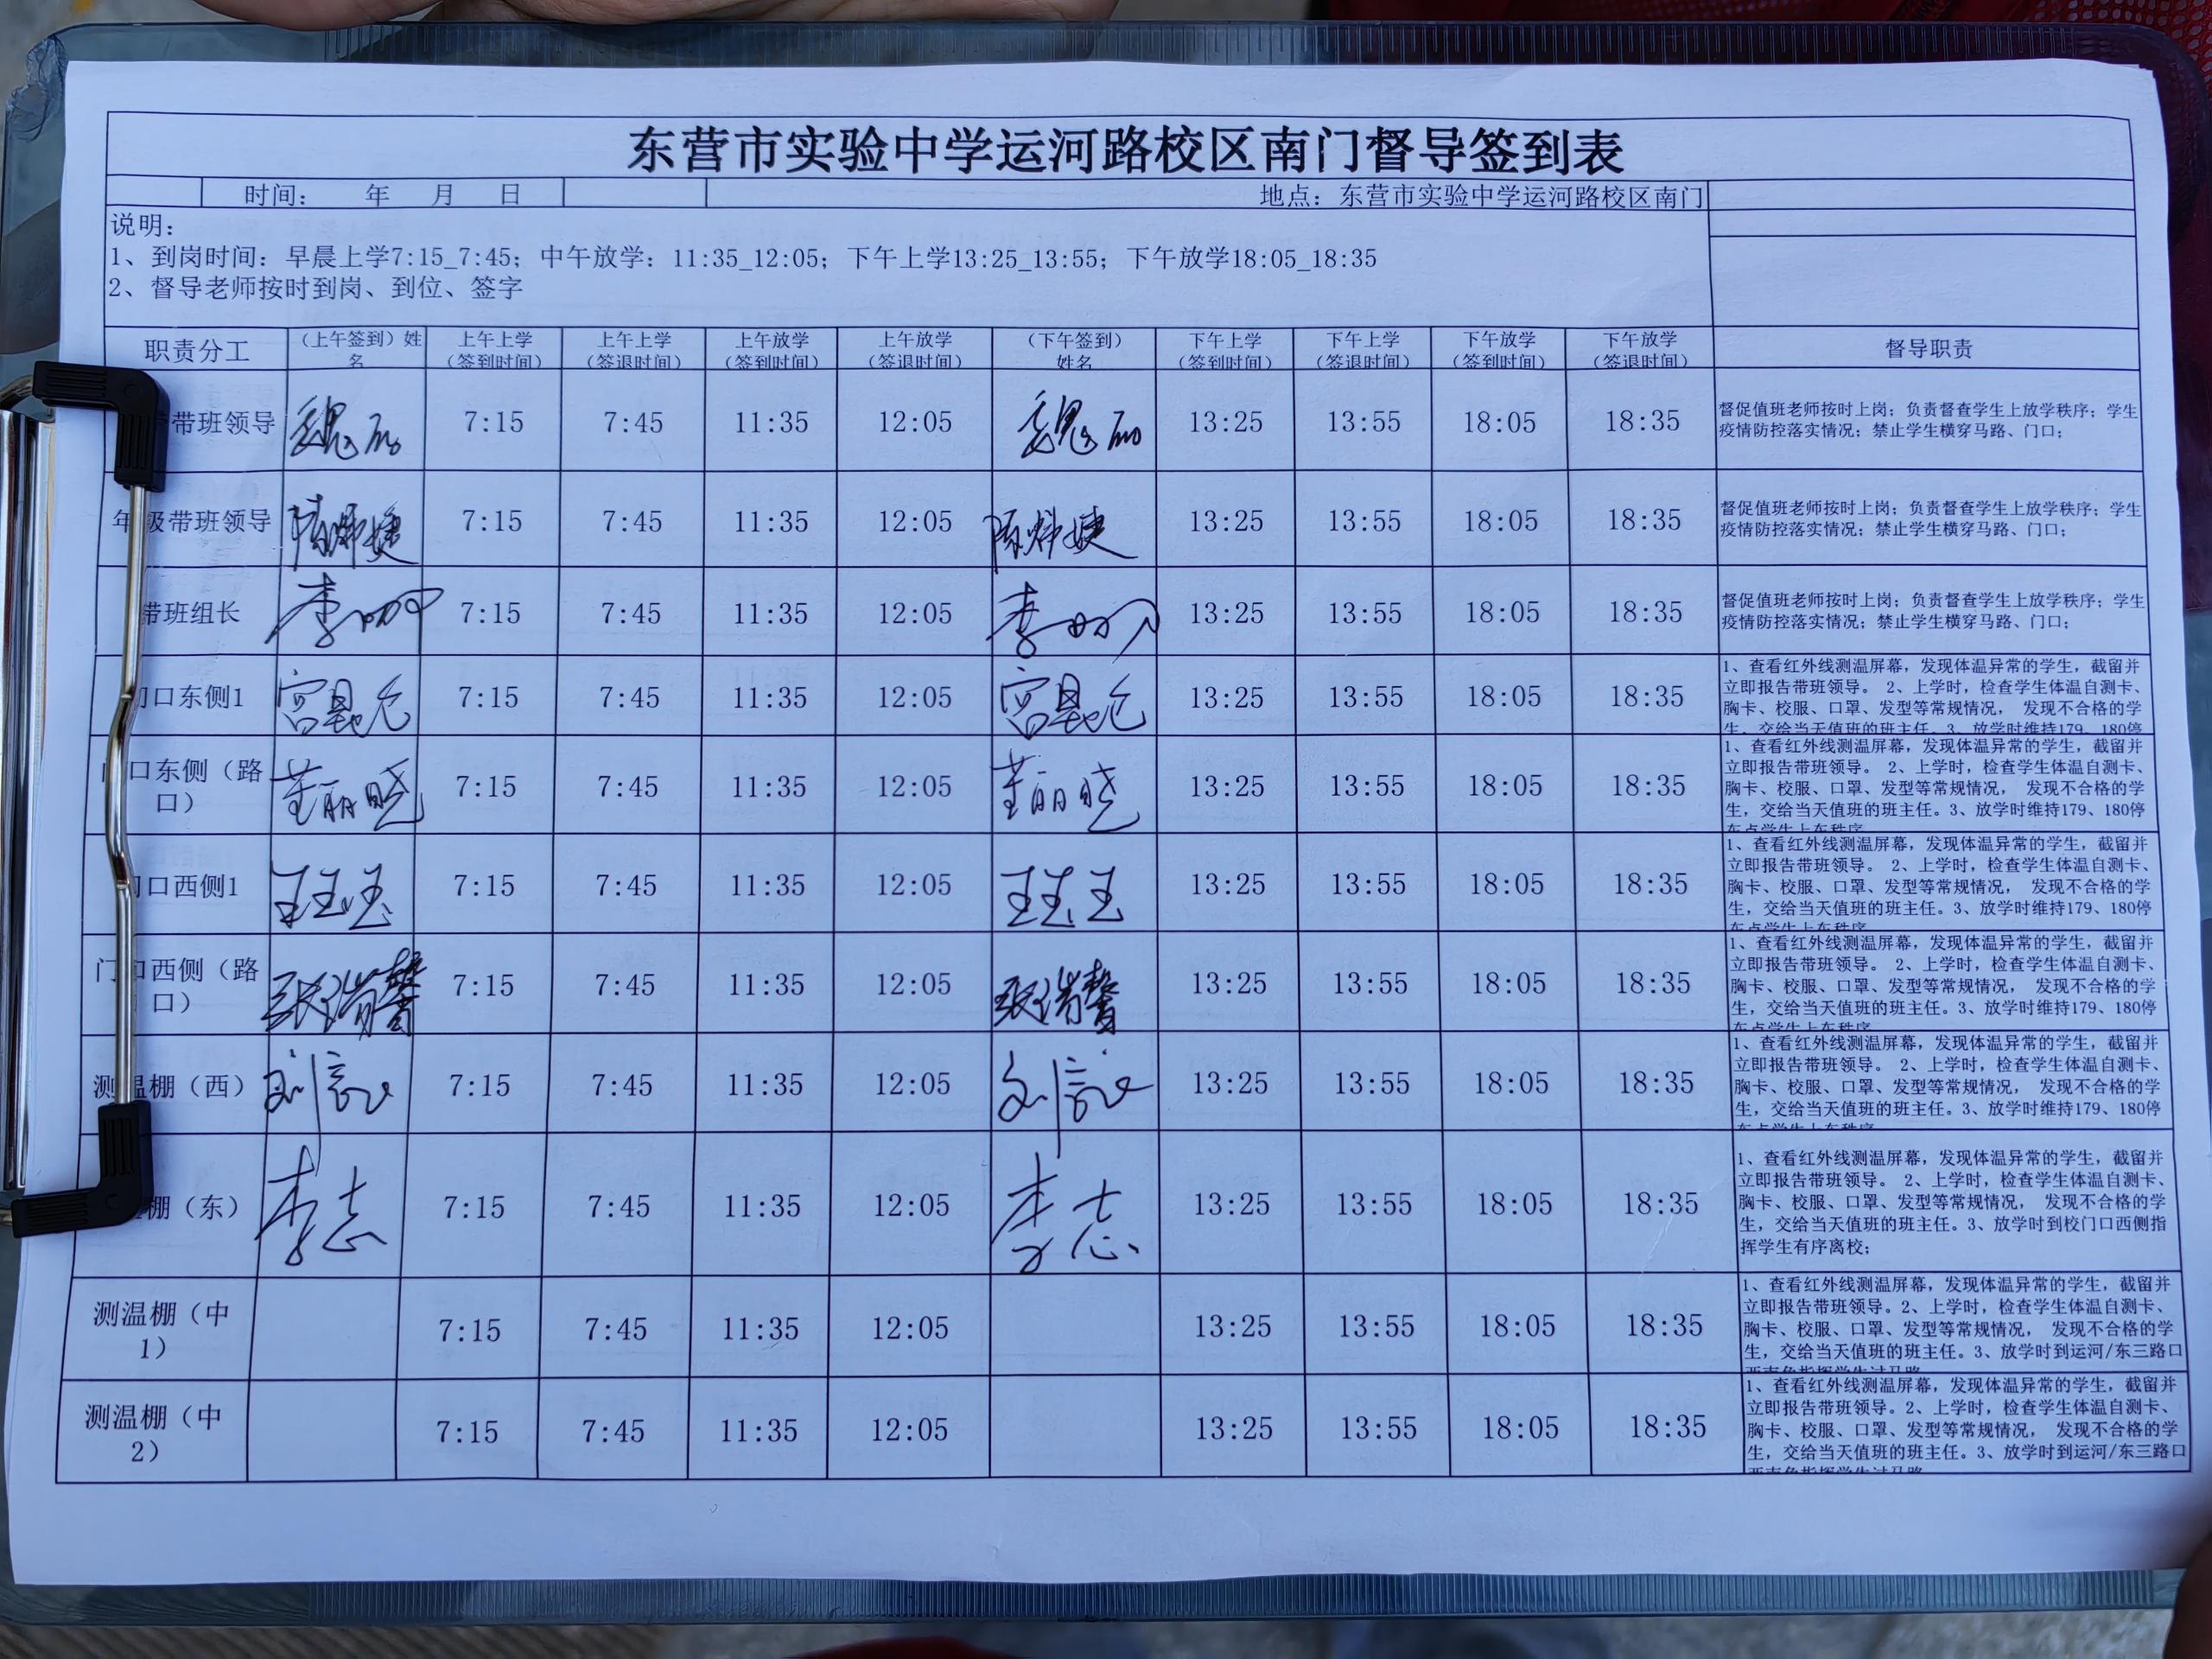 东营市实验中学运河路校区南门督导签到表
时间： 年 月 日 地点：东营市实验中学运河路校区南门
说明：
1、到岗时间：早晨上学7:15_7:45；中午放学：11:35_12:05；下午上学13:25_13:55；下午放学18:05_18:35
2、督导老师按时到岗、到位、签字
职责分工 （上午签到）姓名 上午上学（签到时间） 上午上学（签退时间） 上午放学（签到时间） 上午放学（签退时间） （下午签到）姓名 下午上学（签到时间） 下午上学（签退时间） 下午放学（签到时间） 下午放学（签退时间） 督导职责
带班领导 魏 7:15 7:45 11:35 12:05 魏 13:25 13:55 18:05 18:35 督促值班老师按时上岗；负责督查学生上放学秩序；学生
疫情防控落实情况；禁止学生横穿马路、门口；
年级带班领导 7:15 7:45 11:35 12:05 13:25 13:55 18:05 18:35 督促值班老师按时上岗；负责督查学生上放学秩序；学生
疫情防控落实情况；禁止学生横穿马路、门口；
带班组长 李 7:15 7:45 11:35 12:05 李 13:25 13:55 18:05 18:35 督促值班老师按时上岗；负责督查学生上放学秩序；学生
疫情防控落实情况；禁止学生横穿马路、门口；
门口东侧1 宫 7:15 7:45 11:35 12:05 宫 13:25 13:55 18:05 18:35 1、查看红外线测温屏幕，发现体温异常的学生，截留并
立即报告带班领导。 2、上学时，检查学生体温自测卡、
胸卡、校服、口罩、发型等常规情况， 发现不合格的学
生，交给当天值班的班主任。3、放学时维持179、180停
门口东侧（路口） 董丽晓 7:15 7:45 11:35 12:05 董丽晓 13:25 13:55 18:05 18:35 1、查看红外线测温屏幕，发现体温异常的学生，截留并
立即报告带班领导。 2、上学时，检查学生体温自测卡、
胸卡、校服、口罩、发型等常规情况， 发现不合格的学
生，交给当天值班的班主任。3、放学时维持179、180停
车点学生上车秩序
门口西侧1 王玉玉 7:15 7:45 11:35 12:05 13:25 13:55 18:05 18:35 1、查看红外线测温屏幕，发现体温异常的学生，截留并
立即报告带班领导。 2、上学时，检查学生体温自测卡、
胸卡、校服、口罩、发型等常规情况， 发现不合格的学
生，交给当天值班的班主任。3、放学时维持179、180停
车点学生上车秩序
门口西侧（路口） 7:15 7:45 11:35 12:05 13:25 13:55 18:05 18:35 1、查看红外线测温屏幕，发现体温异常的学生，截留并
立即报告带班领导。 2、上学时，检查学生体温自测卡、
胸卡、校服、口罩、发型等常规情况， 发现不合格的学
生，交给当天值班的班主任。3、放学时维持179、180停
车点学生上车秩序
测温棚（西） 刘 7:15 7:45 11:35 12:05 刘 13:25 13:55 18:05 18:35 1、查看红外线测温屏幕，发现体温异常的学生，截留并
立即报告带班领导。 2、上学时，检查学生体温自测卡、
胸卡、校服、口罩、发型等常规情况， 发现不合格的学
生，交给当天值班的班主任。3、放学时维持179、180停
车点学生上车秩序
棚（东） 李志 7:15 7:45 11:35 12:05 李志 13:25 13:55 18:05 18:35 1、查看红外线测温屏幕，发现体温异常的学生，截留并
立即报告带班领导。 2、上学时，检查学生体温自测卡、
胸卡、校服、口罩、发型等常规情况， 发现不合格的学
生，交给当天值班的班主任。3、放学时到校门口西侧指
挥学生有序离校；
测温棚（中1） 7:15 7:45 11:35 12:05 13:25 13:55 18:05 18:35 1、查看红外线测温屏幕，发现体温异常的学生，截留并
立即报告带班领导。2、上学时，检查学生体温自测卡、
胸卡、校服、口罩、发型等常规情况， 发现不合格的学
生，交给当天值班的班主任。3、放学时到运河/东三路口
西南角指挥学生过马路
测温棚（中2） 7:15 7:45 11:35 12:05 13:25 13:55 18:05 18:35 1、查看红外线测温屏幕，发现体温异常的学生，截留并
立即报告带班领导。2、上学时，检查学生体温自测卡、
胸卡、校服、口罩、发型等常规情况， 发现不合格的学
生，交给当天值班的班主任。3、放学时到运河/东三路口
西南角指挥学生过马路